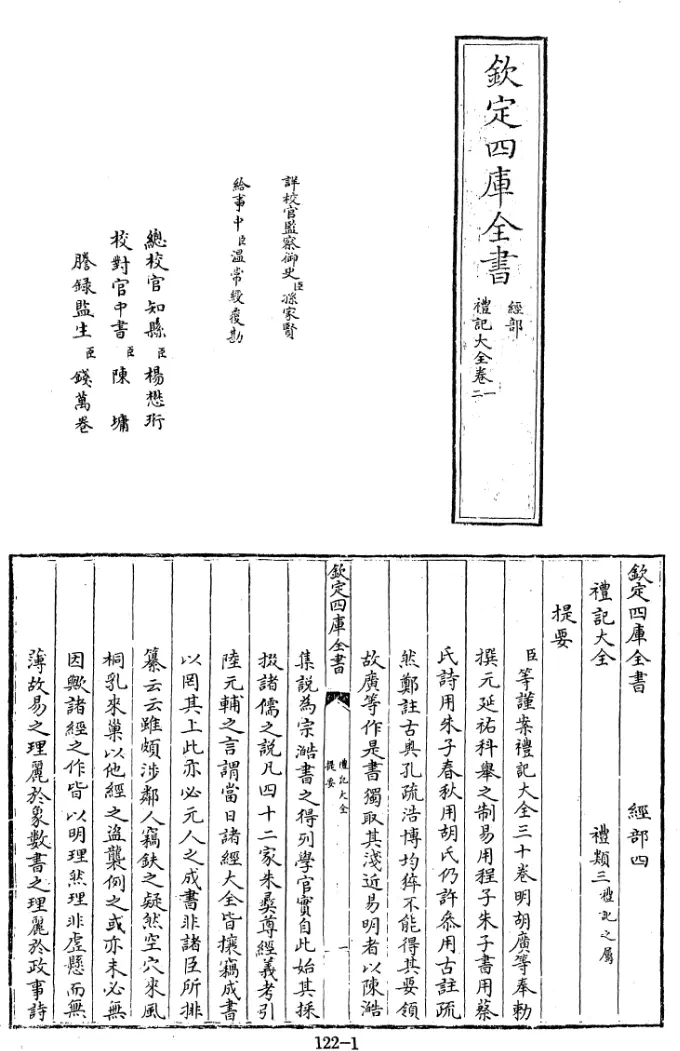 欽定四庫全書
經部
禮記大全卷一
二
詳校官監察御史臣孫家賢
給事中臣溫常綬覆勘
總校官知縣臣楊懋珩
校對官中書臣陳墉
謄錄監生臣錢萬卷
欽定四庫全書 經部四
禮記大全 禮類三禮記之屬
提要
臣等謹案禮記大全三十卷明胡廣等奉勅
撰元延祐科舉之制易用程子朱子書用蔡
氏詩用朱子春秋用胡氏仍許叅用古註疏
然鄭註古奥孔疏浩博均猝不能得其要領
故廣等作是書獨取其淺近易明者以陳澔
欽定四庫全書
禮記大全
提要
一
集説為宗澔書之得列學官實自此始其採
掇諸儒之説凡四十二家朱彞尊經義考引
陸元輔之言謂當日諸經大全皆攘竊成書
以罔其上此亦必元人之成書非諸臣所排
纂云云雖頗涉鄰人竊鈇之疑然空穴來風
桐乳來巢以他經之盜襲例之或亦未必無
因歟諸經之作皆以明理然理非虛懸而無
薄故易之理麗於象數書之理麗於政事詩
122-1